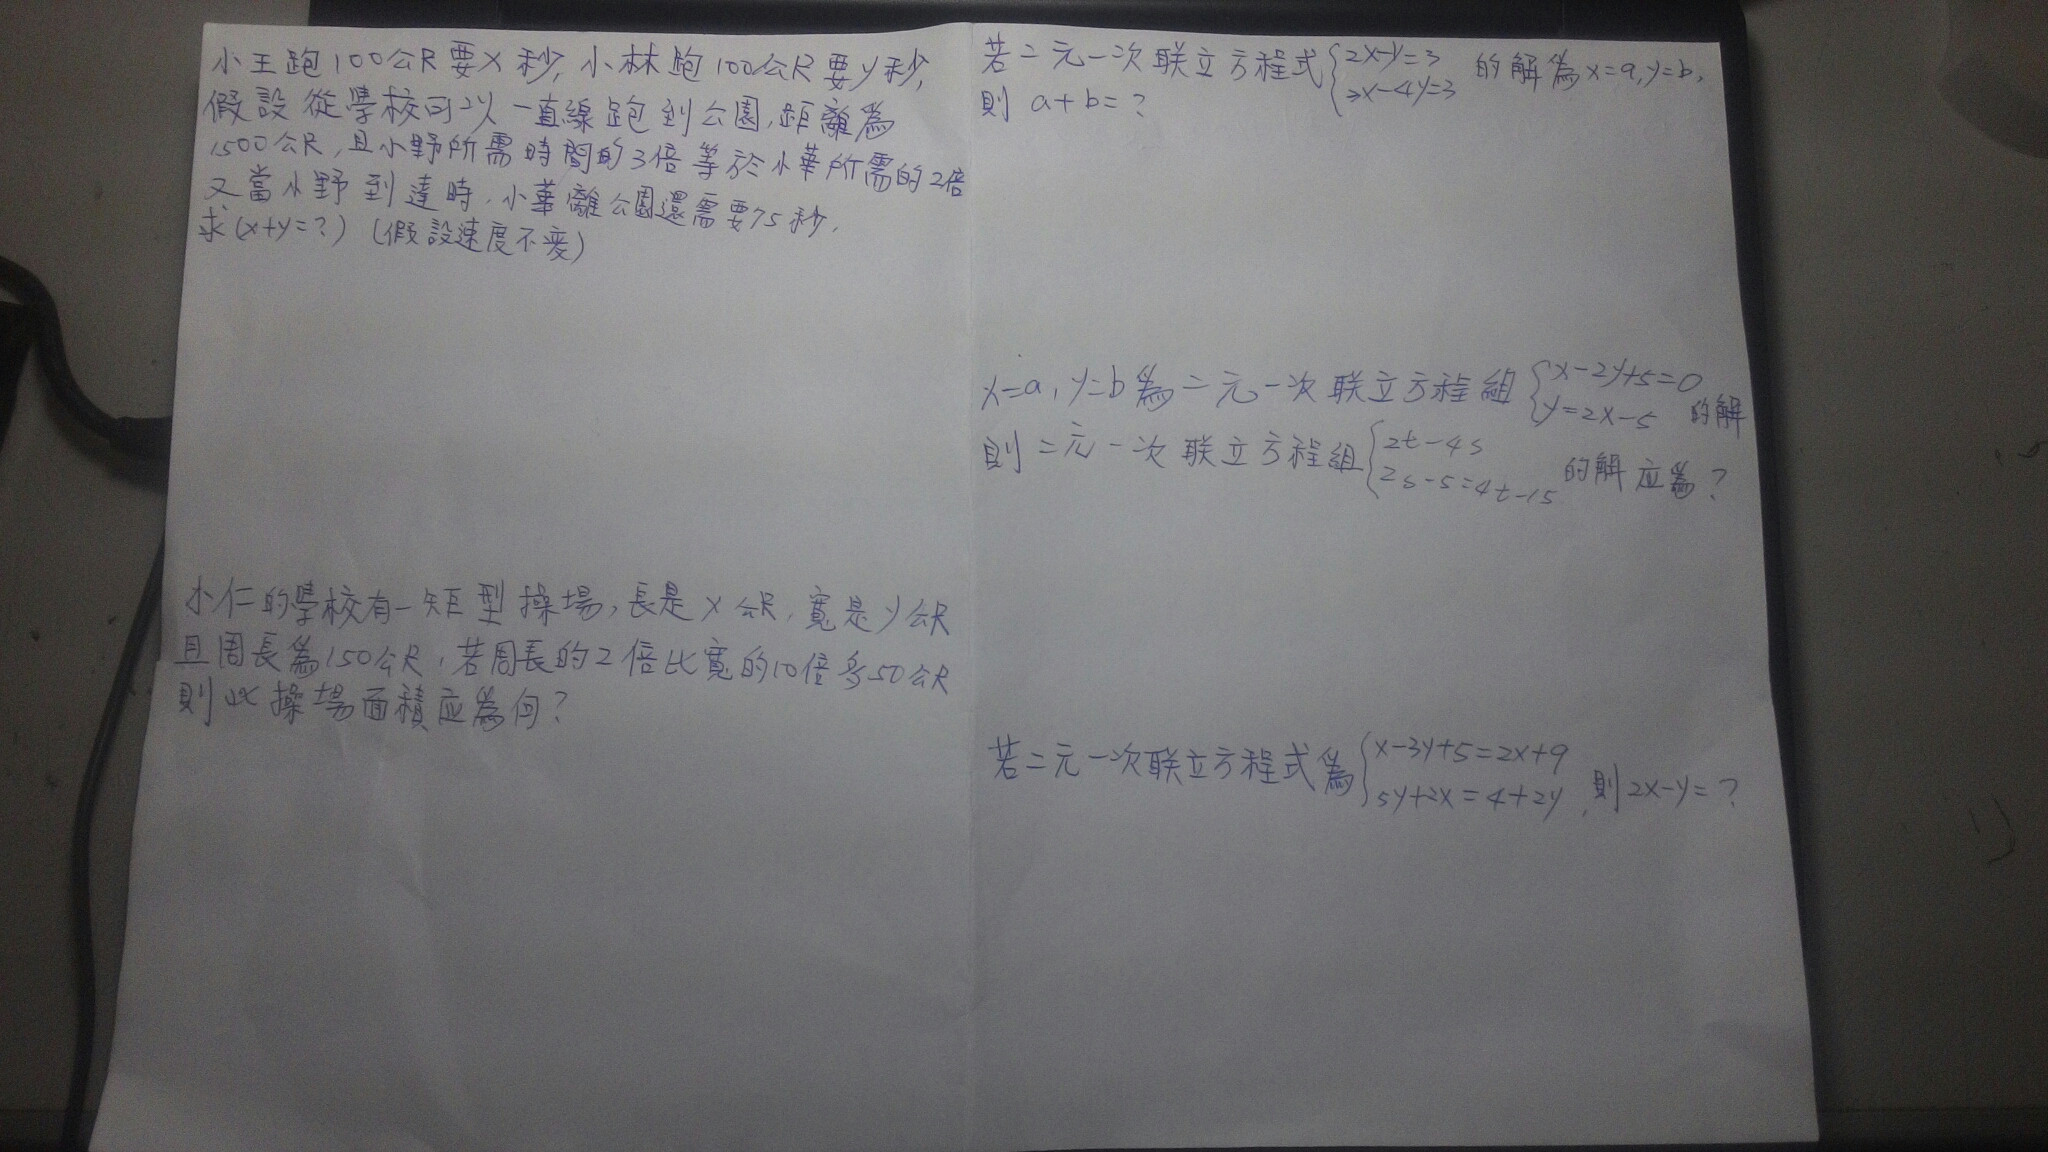 小王跑100公尺要x秒,小林跑100公尺要y秒,
假設從學校可以一直線跑到公園,距離為
1500公尺,且小野所需時間的3倍等於小華所需的2倍
又當小野到達時,小華離公園還需要75秒,
求(x+y=?)(假設速度不变)
小仁的學校有一矩型操場,長是x公尺,寬是y公尺
且周長為150公尺,若周長的2倍比寬的10倍多50公尺
則此操場面積应為何?
若二元一次联立方程式{2x-y=3
3x-4y=3 的解為x=a,y=b,
則 a+b=?
x=a,y=b為二元一次联立方程組{x-2y+5=0
y=2x-5 的解
則二元一次联立方程組{2t-4s
2s-5=4t-15 的解应為?
若二元一次联立方程式為{x-3y+5=2x+9
5y+2x=4+2y,則2x-y=?